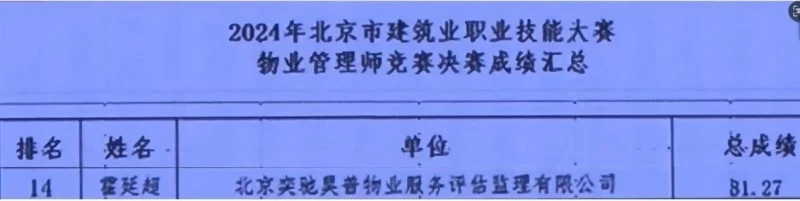 2024年北京市建筑业职业技能大赛
物业管理师竞赛决赛成绩汇总
排名 姓名 单位 总成绩
14 霍延超 北京奕驰昊普物业服务评估监理有限公司 81.27